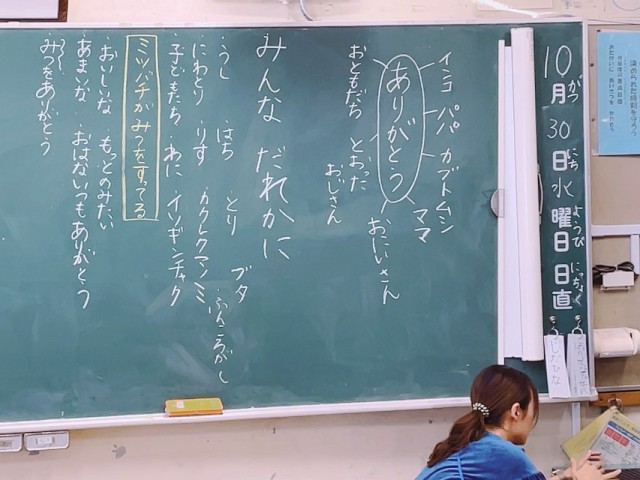 10月30日水曜日 日直
がつ
にち
ようび
にっちょく
インコ パパ カブトムシ
ママ
ありがとう
おにいさん
おともだち とおった
おじさん
みんな だれかに
・うし ・はち ・とり ブタ
・にわとり ・りす ・カクレクマノミ ・ふんころがし
・子どもたち ・わに ・イソギンチャク
ミツバチがみつをすってる
・おいしいな ・もっとのみたい
・あまいな ・おはないつもありがとう
・みつをありがとう